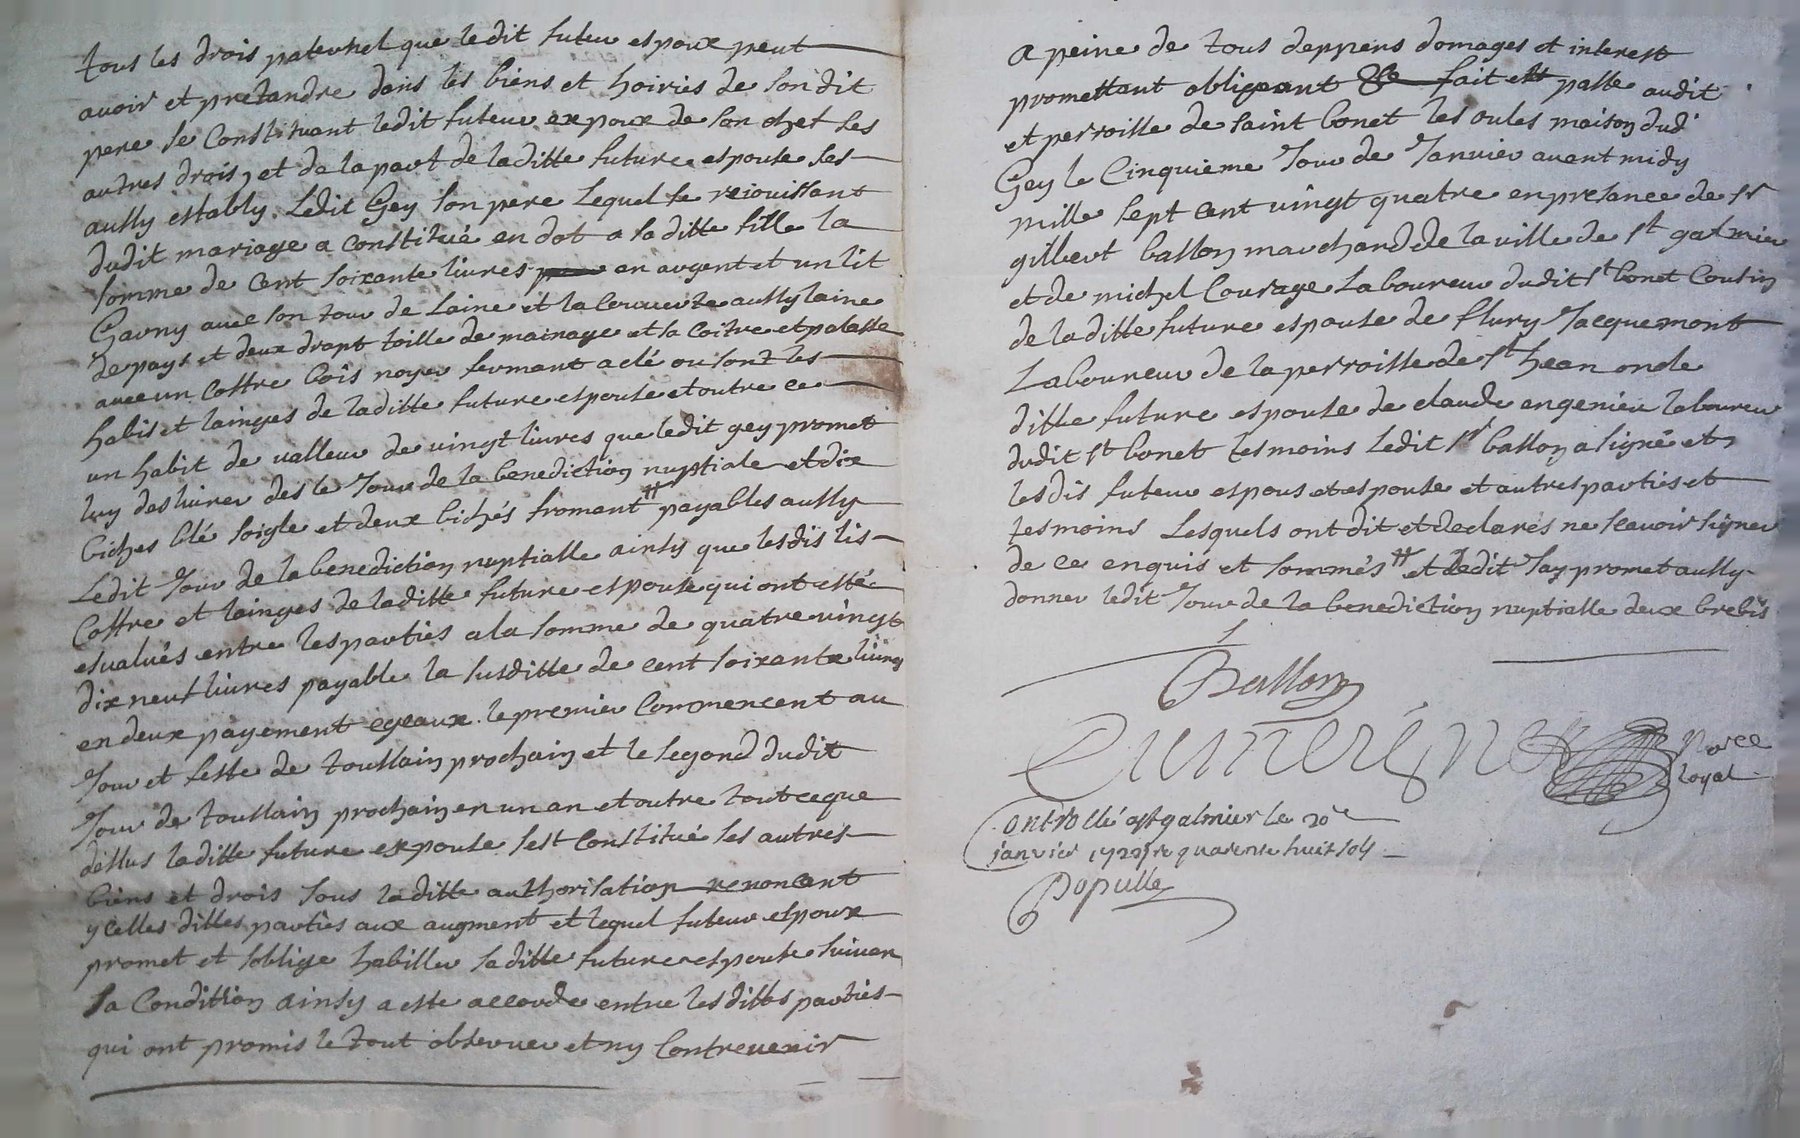 tous les drois paternel que ledit futeur espoux peut
avoir et pretandre dans les biens et hoiries de son dit
pere se Constituant ledit futeur expoux de son chef ses
autres drois, et de la part de laditte future espouse ses
aussy estably. Ledit Gey son pere Lequel se rejouissant
dudit mariage a constitué en dot a sa ditte fille la
somme de cent soixante livres en argent et un lit
Garny avec son tour de Laine et la couverte aussy laine
de pays et deux drapt toille de mainage et sa coitre et palasse
avec un coffre bois noyer fermant a clé ou sont les
habis et lainges de laditte future espouse et outre ce
un habit de valleur de vingt livres que ledit gey promet
luy deslivrer des le Jour de la benediction nuptiale et dix
biches blé soigle et deux bichés fromant # payables aussy
Ledit Jour de la benediction nuptialle ainsy que lesdis lis
Coffre et lainges de laditte future espouse qui ont esté
esvalués entre les parties a la somme de quatre vingt
dix neuf livres payable la susditte de cent soixante livres
en deux payement egeaux. le premier Commencent au
Jour et feste de toussain prochain et le segond dudit
Jour de toussain prochain en un an et outre tout ce que
dessus laditte future expouse sest Constitué ses autres
biens et drois sous laditte authorisation renoncent
ycelles dittes parties aux augment et lequel futeur espoux
promet et soblige habiller saditte future espouse suivan
sa Condition ainsy a este accorde entre les dittes parties
qui ont promis le tout observer et ny Contrevenir
a peine de tous deppens domages et interest
promettant obligeant &c fait et passe audit
et perroisse de saint bonet les oules maison dud
Gey le Cinquieme Jour de Janvier avant midy
mille sept cent vingt quatre en presance de sr
gilbert ballon marchand de la ville de st galmier
et de michel Courage Laboureur dudit st bonet Cousin
de laditte future espouse de flury Jacquemont
Laboureur de la perroisse de st hean oncle
ditte future espouse de claude engenieu laboureur
dudit st bonet tesmoins Ledit sr ballon a signé et
lesdis futeur espous et espouse et autres parties et
tesmoins Lesquels ont dit et declarés ne scavoir signer
de ce enquis et sommés # et Ledit Jay promet aussy
donner ledit Jour de la benediction nuptialle deux brebis
Ballon
Nore
royal
Controllé a st galmier le 20e
janvier 1724 quarente huit sols
Populle